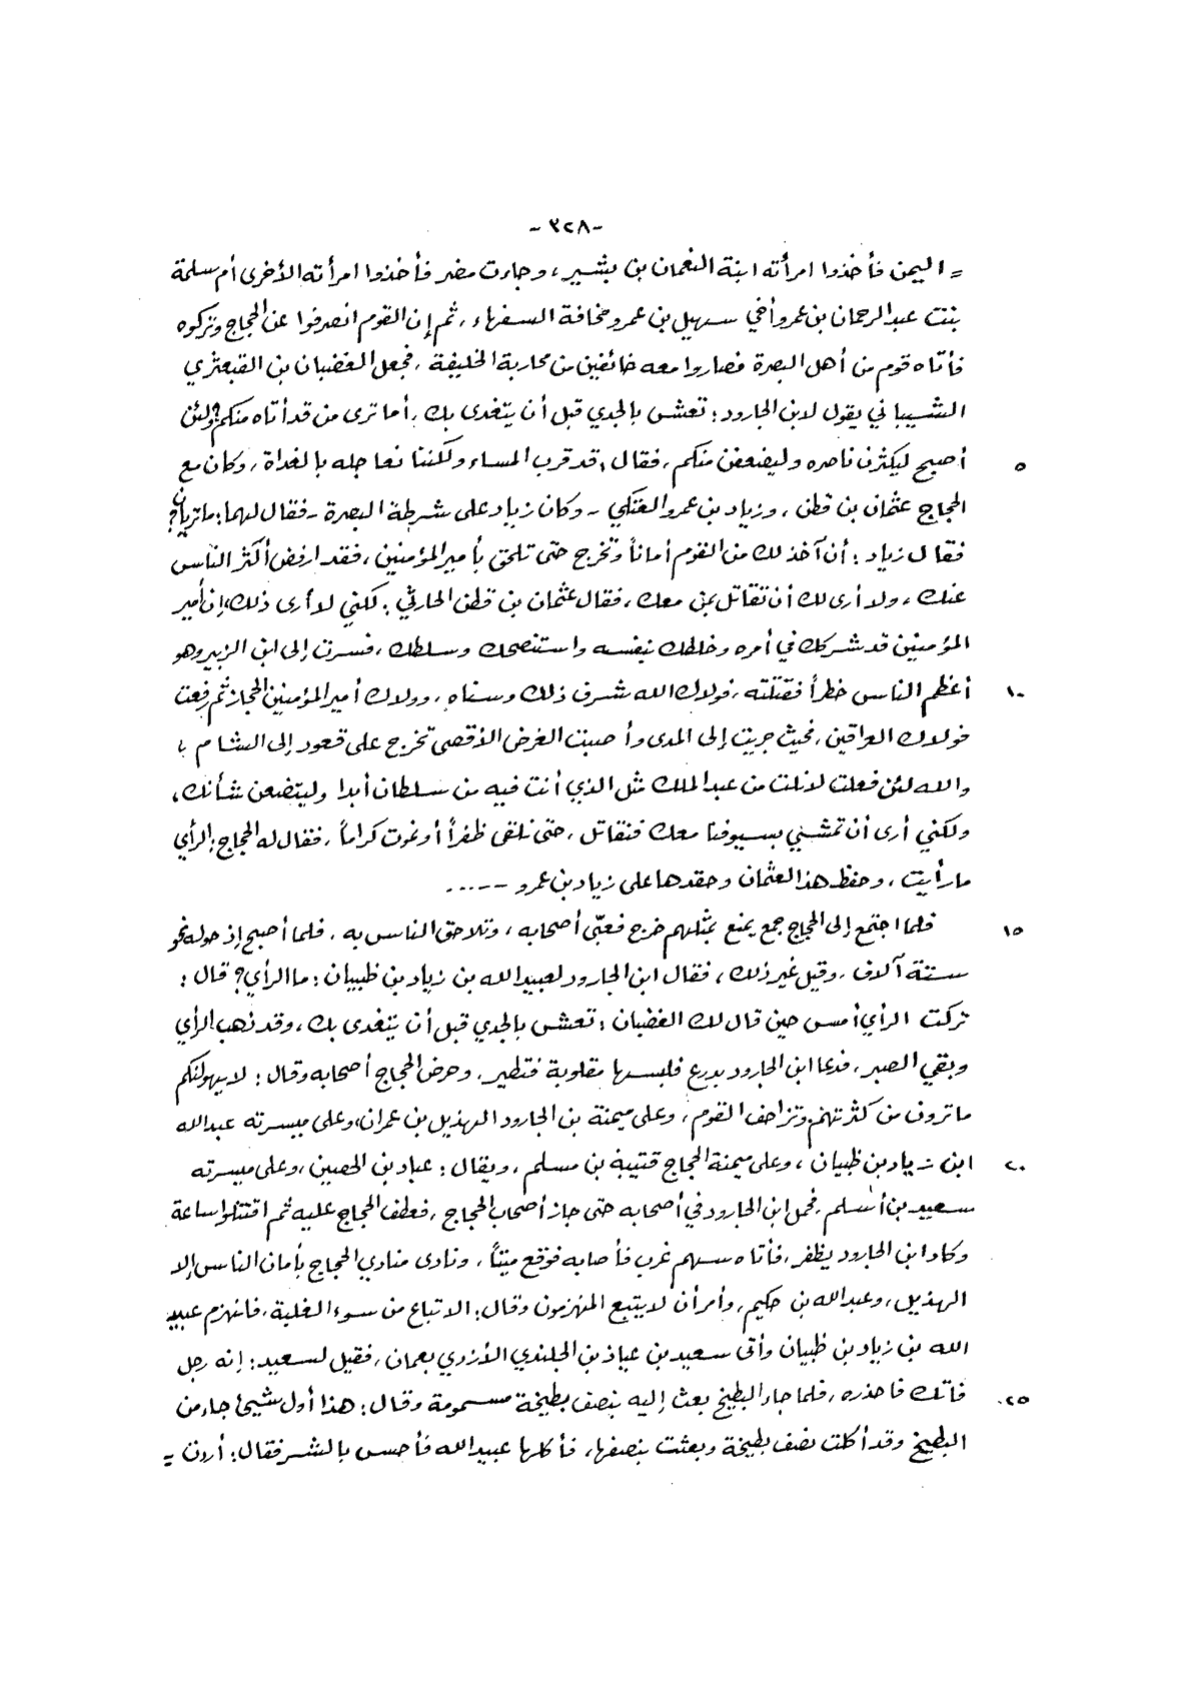 -٣٢٨-
= اليمن فأخذوا امرأته ابنة النعمان بن بشير، وجاءت مضر فأخذوا امرأته الأخرى أم سلمة
بنت عبد الرحمان بن عمرو أخي سهيل بن عمرو مخافة السفهاء، ثم إن القوم انصرفوا عن الحجاج وتركوه
فأتاه قوم من أهل البصرة فصاروا معه خائفين من محاربة الخليفة، فجعل الغضبان بن القبعثري
الشيباني يقول لابن الجارود: تعشى بالجدي قبل أن يتغدى بك، أما ترى من قد أتاه منكم؟ ولئن
أصبح ليكثرن ناصره وليضعفن منكم، فقال: قد قرب المساء ولكننا نعاجله بالغداة، وكان مع
٥
الحجاج عثمان بن قطن، وزياد بن عمرو العتكي - وكان زياد على شرطة البصرة - فقال لهما: ما تريان؟
فقال زياد: أن آخذ لك من القوم أماناً وتخرج حتى تلحق بأمير المؤمنين، فقد ارفض أكثر الناس
عنك، ولا أرى لك أن تقاتل بمن معك، فقال عثمان بن قطن الحارثي: لكني لا أرى ذلك، إن أمير
المؤمنين قد شركك في أمره وخلطك بنفسه واستنصحك وسلطك، فسرت إلى ابن الزبير وهو
أعظم الناس خطراً فقتلته، فولاك الله شرف ذلك وسناه، وولاك أمير المؤمنين الحجاز ثم رفعت
١٠
فولاك العراقين، فحيث جريت إلى المدى وأصبت الغرض الأقصى تخرج على قعود إلى الشام ؟
والله لئن فعلت لا نلت من عبد الملك مثل الذي أنت فيه من سلطان أبدا وليتضعن شأنك،
ولكني أرى أن تمشي بسيوفنا معك فنقاتل، حتى نلقى ظفراً أو نموت كراماً، فقال له الحجاج: الرأي
ما رأيت، وحفظ هذا لعثمان وحقدها على زياد بن عمرو -----
فلما اجتمع إلى الحجاج جمع يمنع بمثلهم خرج فعبّى أصحابه، وتلاحق الناس به، فلما أصبح إذ حوله نحو
١٥
ستة آلاف، وقيل غير ذلك، فقال ابن الجارود لعبيد الله بن زياد بن ظبيان: ما الرأي؟ قال:
تركت الرأي أمس حين قال لك الغضبان: تعشى بالجدي قبل أن يتغدى بك، وقد ذهب الرأي
وبقي الصبر، فدعا ابن الجارود بدرع فلبسها مقلوبة فتطير، وحرض الحجاج أصحابه وقال: لا يهولنكم
ما ترون من كثرتهم، وتزاحف القوم، وعلى ميمنة بن الجارود الهذيل بن عمران، وعلى ميسرته عبد الله
ابن زياد بن ظبيان، وعلى ميمنة الحجاج قتيبة بن مسلم، ويقال: عباد بن الحصين، وعلى ميسرته
٢٠
سعيد بن أسلم، فحمل ابن الجارود في أصحابه حتى جاز أصحاب الحجاج، فعطف الحجاج عليه ثم اقتتلوا ساعة
وكاد ابن الجارود يظفر، فأتاه سهم غرب فأصابه فوقع ميتاً، ونادى منادي الحجاج بأمان الناس إلا
الهذيل، وعبد الله بن حكيم، وأمر أن لا يتبع المنهزمون وقال: الاتباع من سوء الغلبة، فانهزم عبيد
الله بن زياد بن ظبيان وأتى سعيد بن عياذ بن الجلندي الأزدي بعمان، فقيل لسعيد: إنه رجل
فاتك فاحذره، فلما جاء البطيخ بعث إليه بنصف بطيخة مسمومة وقال: هذا أول شيئ جاء من
٢٥
البطيخ وقد أكلت نصف بطيخة وبعثت بنصفها، فأكلها عبيد الله فأحس بالشر فقال: أردت =